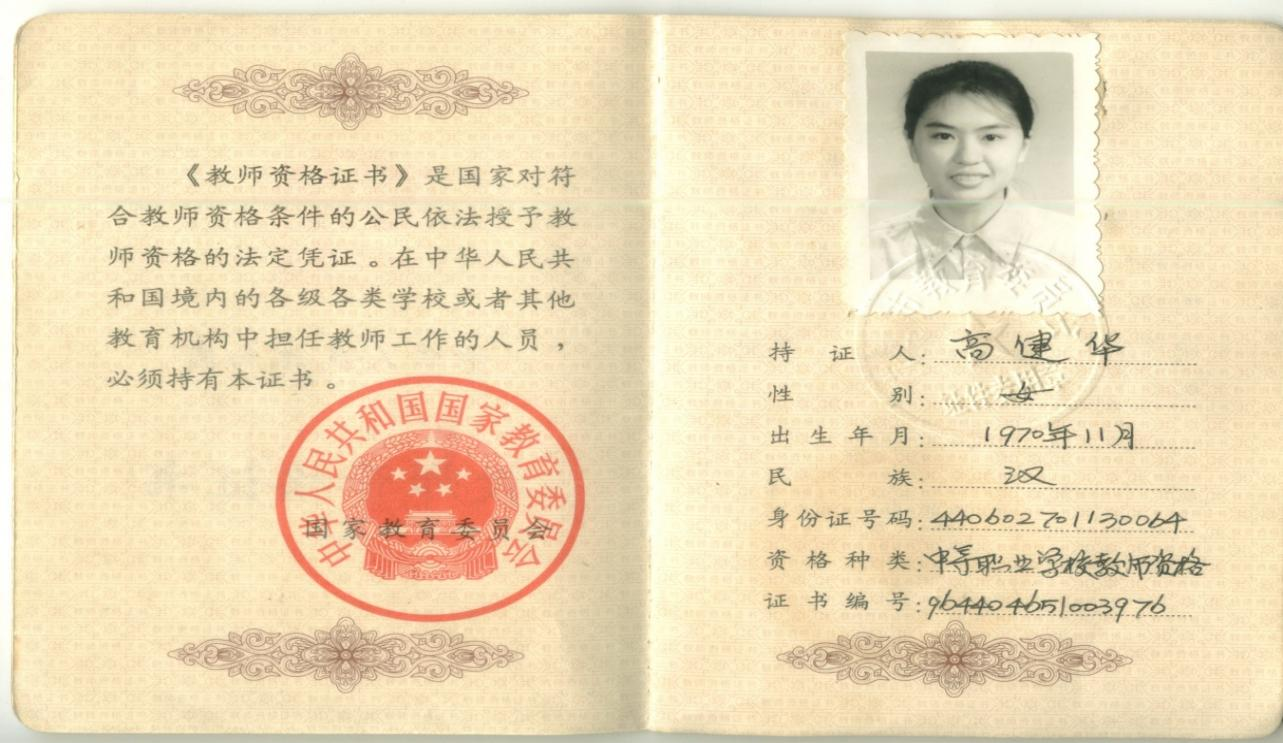 《教师资格证书》是国家对符
合教师资格条件的公民依法授予教
师资格的法定凭证。在中华人民共
和国境内的各级各类学校或者其他
教育机构中担任教师工作的人员，
必须持有本证书。
中华人民共和国国家教育委员会
国家教育委员会
持证人：高健华
性别：女
出生年月：1970年11月
民族：汉
身份证号码：440602701130064
资格种类：中等职业学校教师资格
证书编号：964404651003976